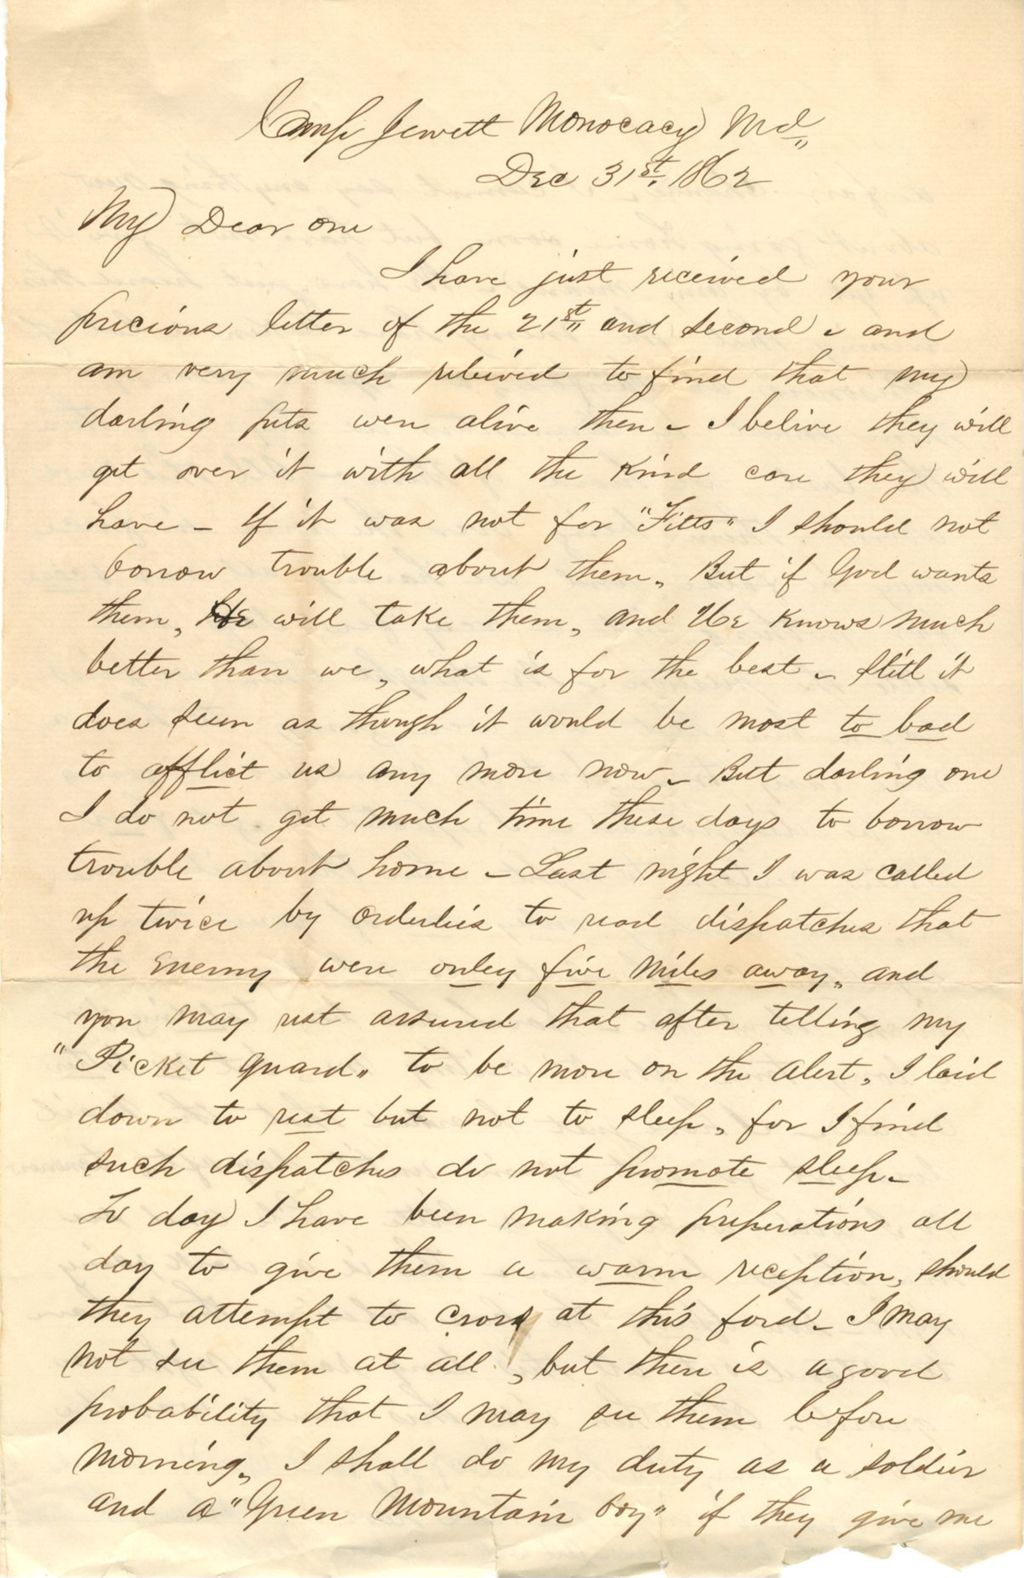 Camp Jewett Monocacy Md
Dec 31st. 1862
My Dear one
I have just received your
precious letter of the 21st and second - and
am very much releived to find that my
darling pets were alive then - I belive they will
get over it with all the kind care they will
have - If it was not for "Fitts" I should not
borrow trouble about them, But if God wants
them, He will take them, and He knows much
better than we, what is for the best - Still it
does seem as though it would be most to bad
to afflict us any more now - But darling one
I do not get much time these days to borrow
trouble about home - Last night I was called
up twice by orderlies to read dispatches that
the Enemy were onley five miles away, and
you may rest assured that after telling my
"Picket guard" to be more on the alert, I laid
down to rest but not to sleep, for I find
such dispatches do not promote sleep -
To day I have been making preperations all
day to give them a warm reception, should
they attempt to cross at this ford - I may
not see them at all, but there is a good
probability that I may see them before
morning, I shall do my duty as a soldier
and a "Green Mountain boy" if they give me